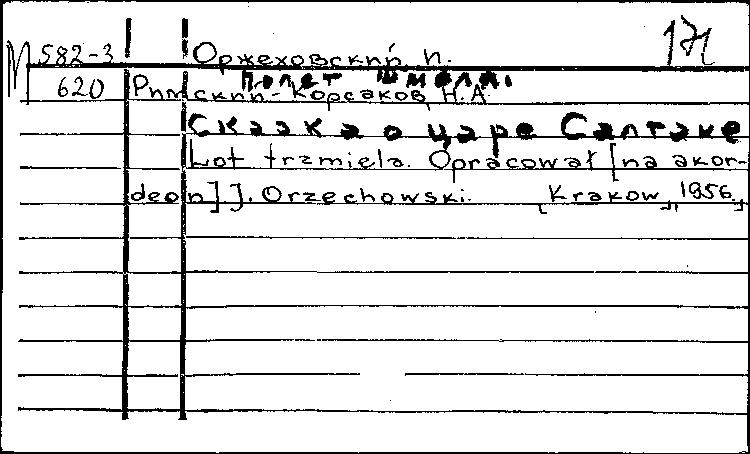 М 582-3 Оржеховский, И.
Полет шмеля.
620 Римский-Корсаков, Н.А.
Сказка о царе Салтане
Lot trzmiela. Opracował [na akor-
deon] J. Orzechowski. [Krakow, 1956.]